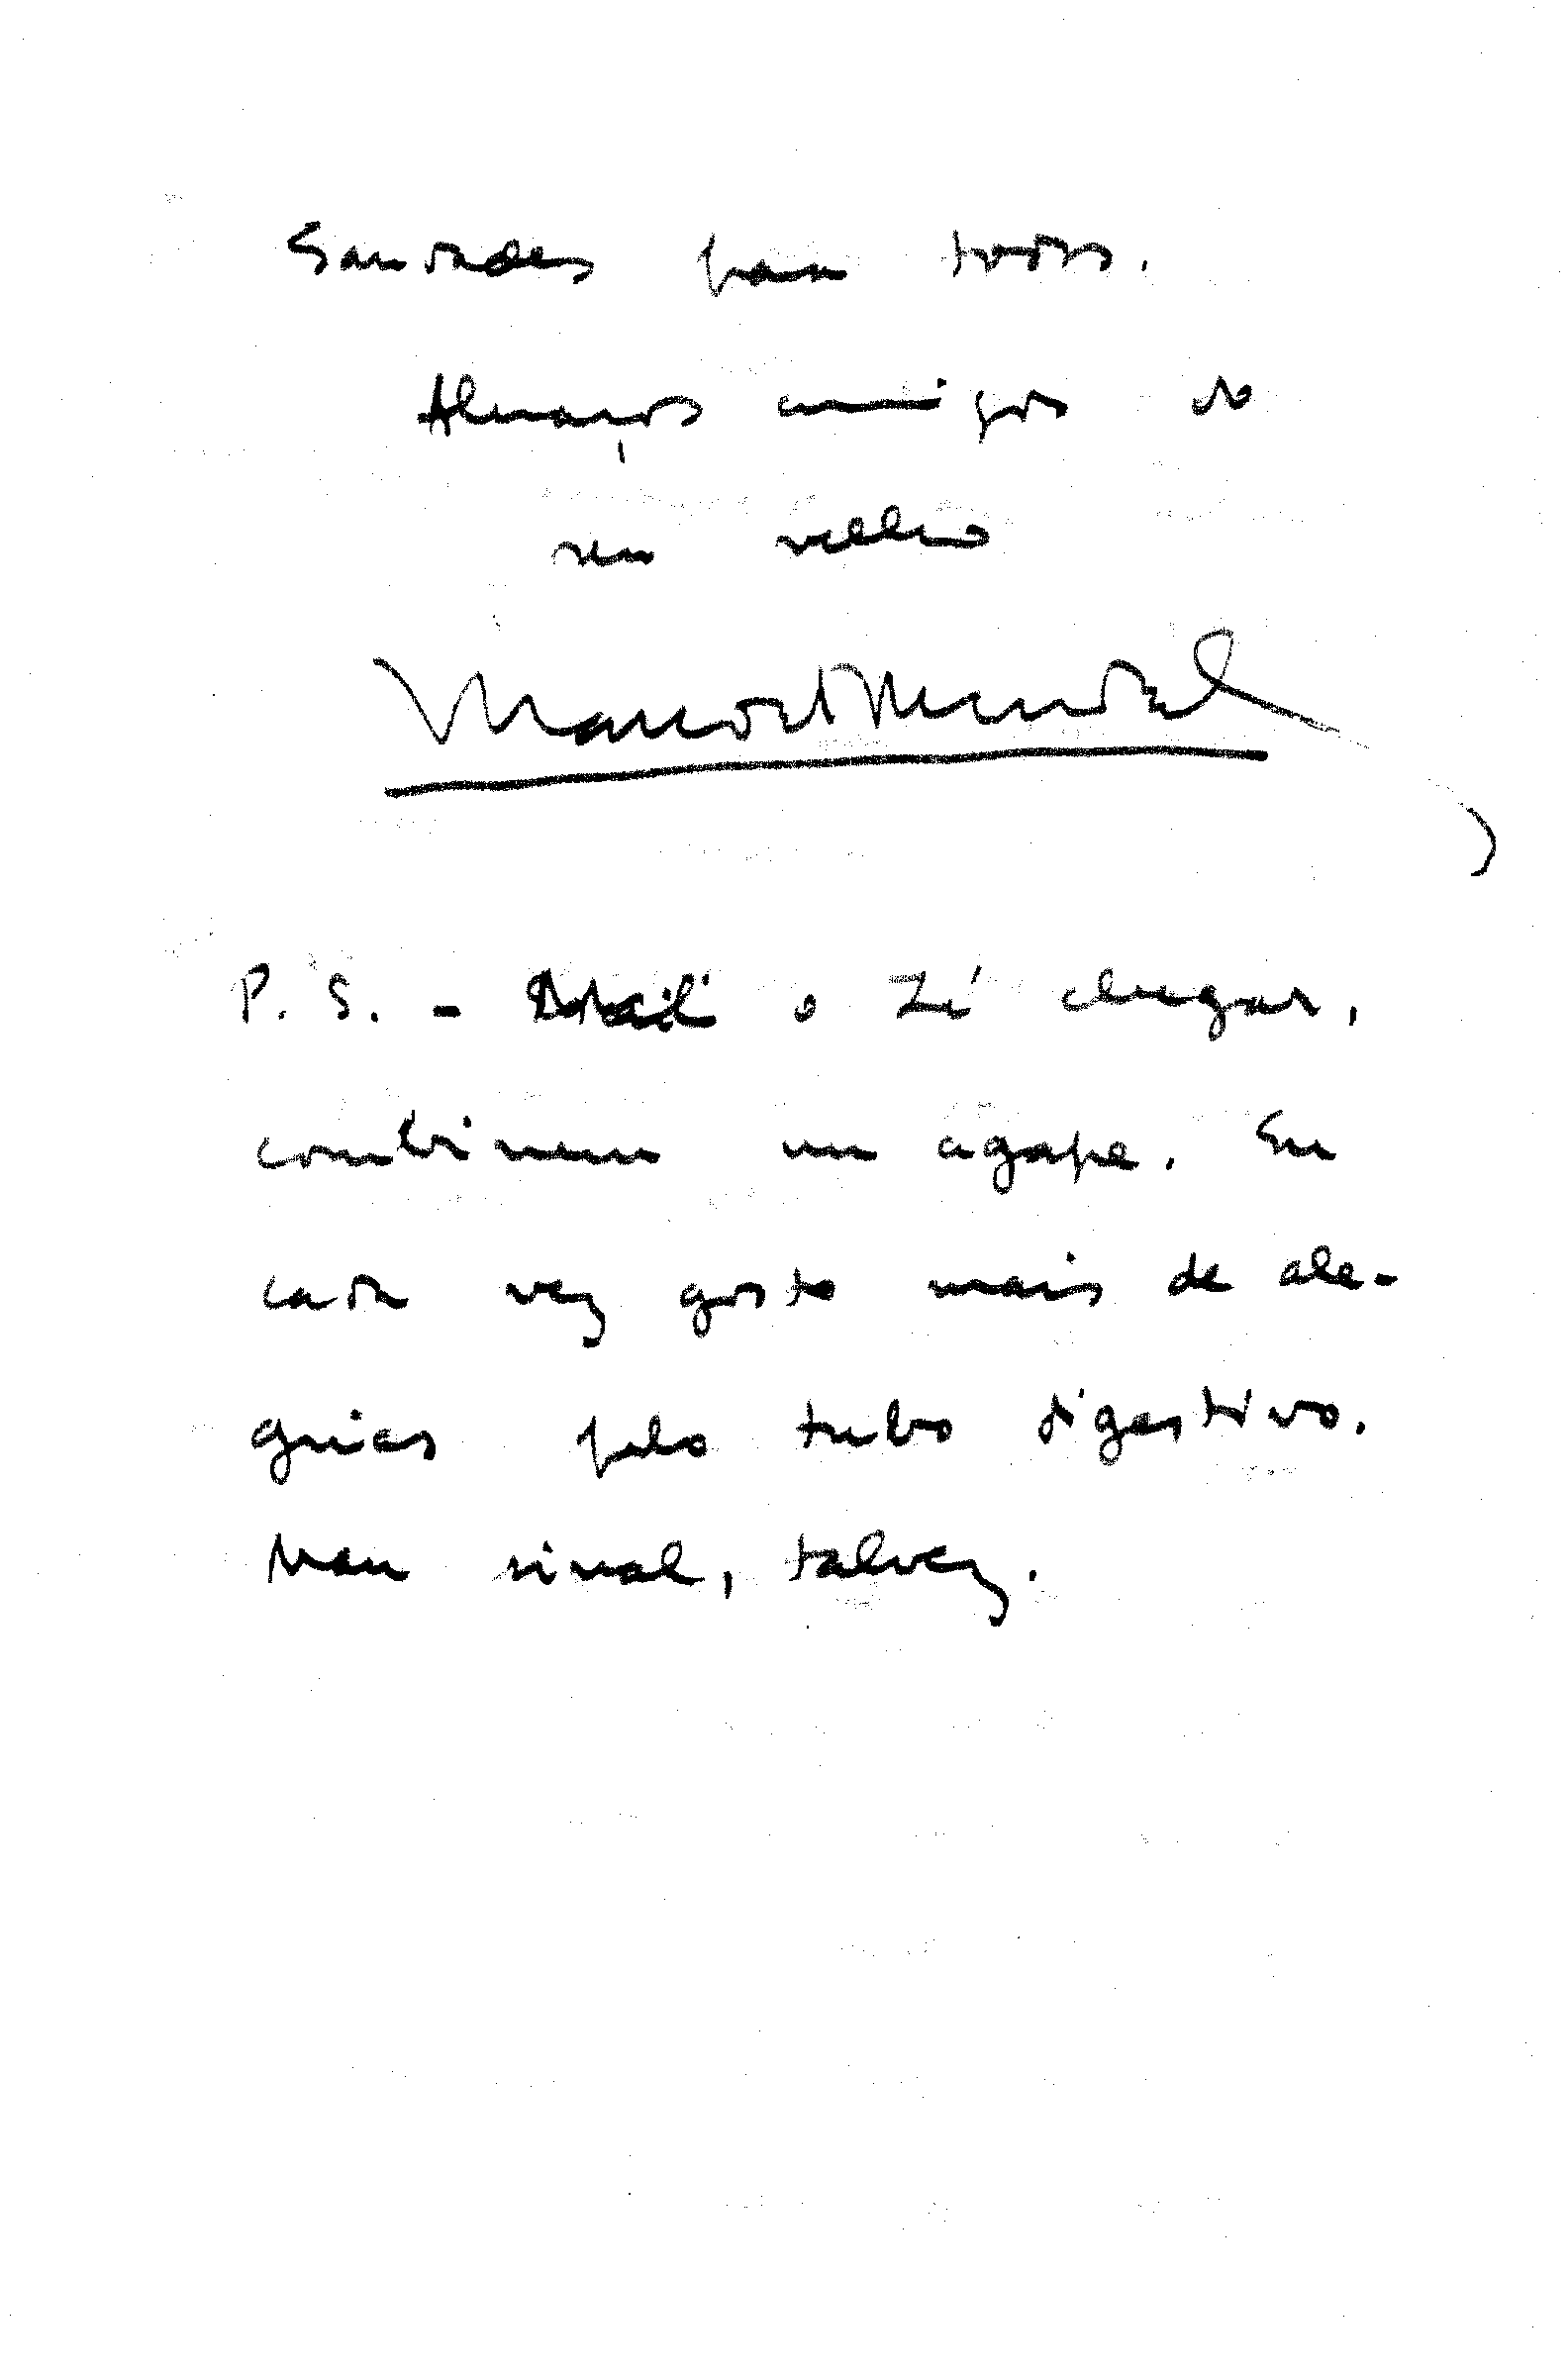 Saudades para todos.
Abraços amigos do
seu velho
Manoel Mendes
P. S. - o Zé chegar,
combinem um agape. Eu
cada vez gosto mais de ale-
grias pelo tubo digestivo.
Mau sinal, talvez.